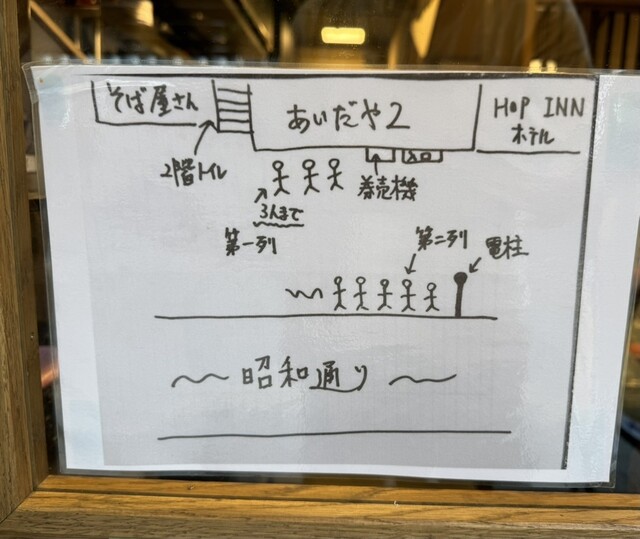 そば屋さん
あいだや2
HOP INN
ホテル
2階トイレ
券売機
3人まで
第一列
第二列
電柱
昭和通り